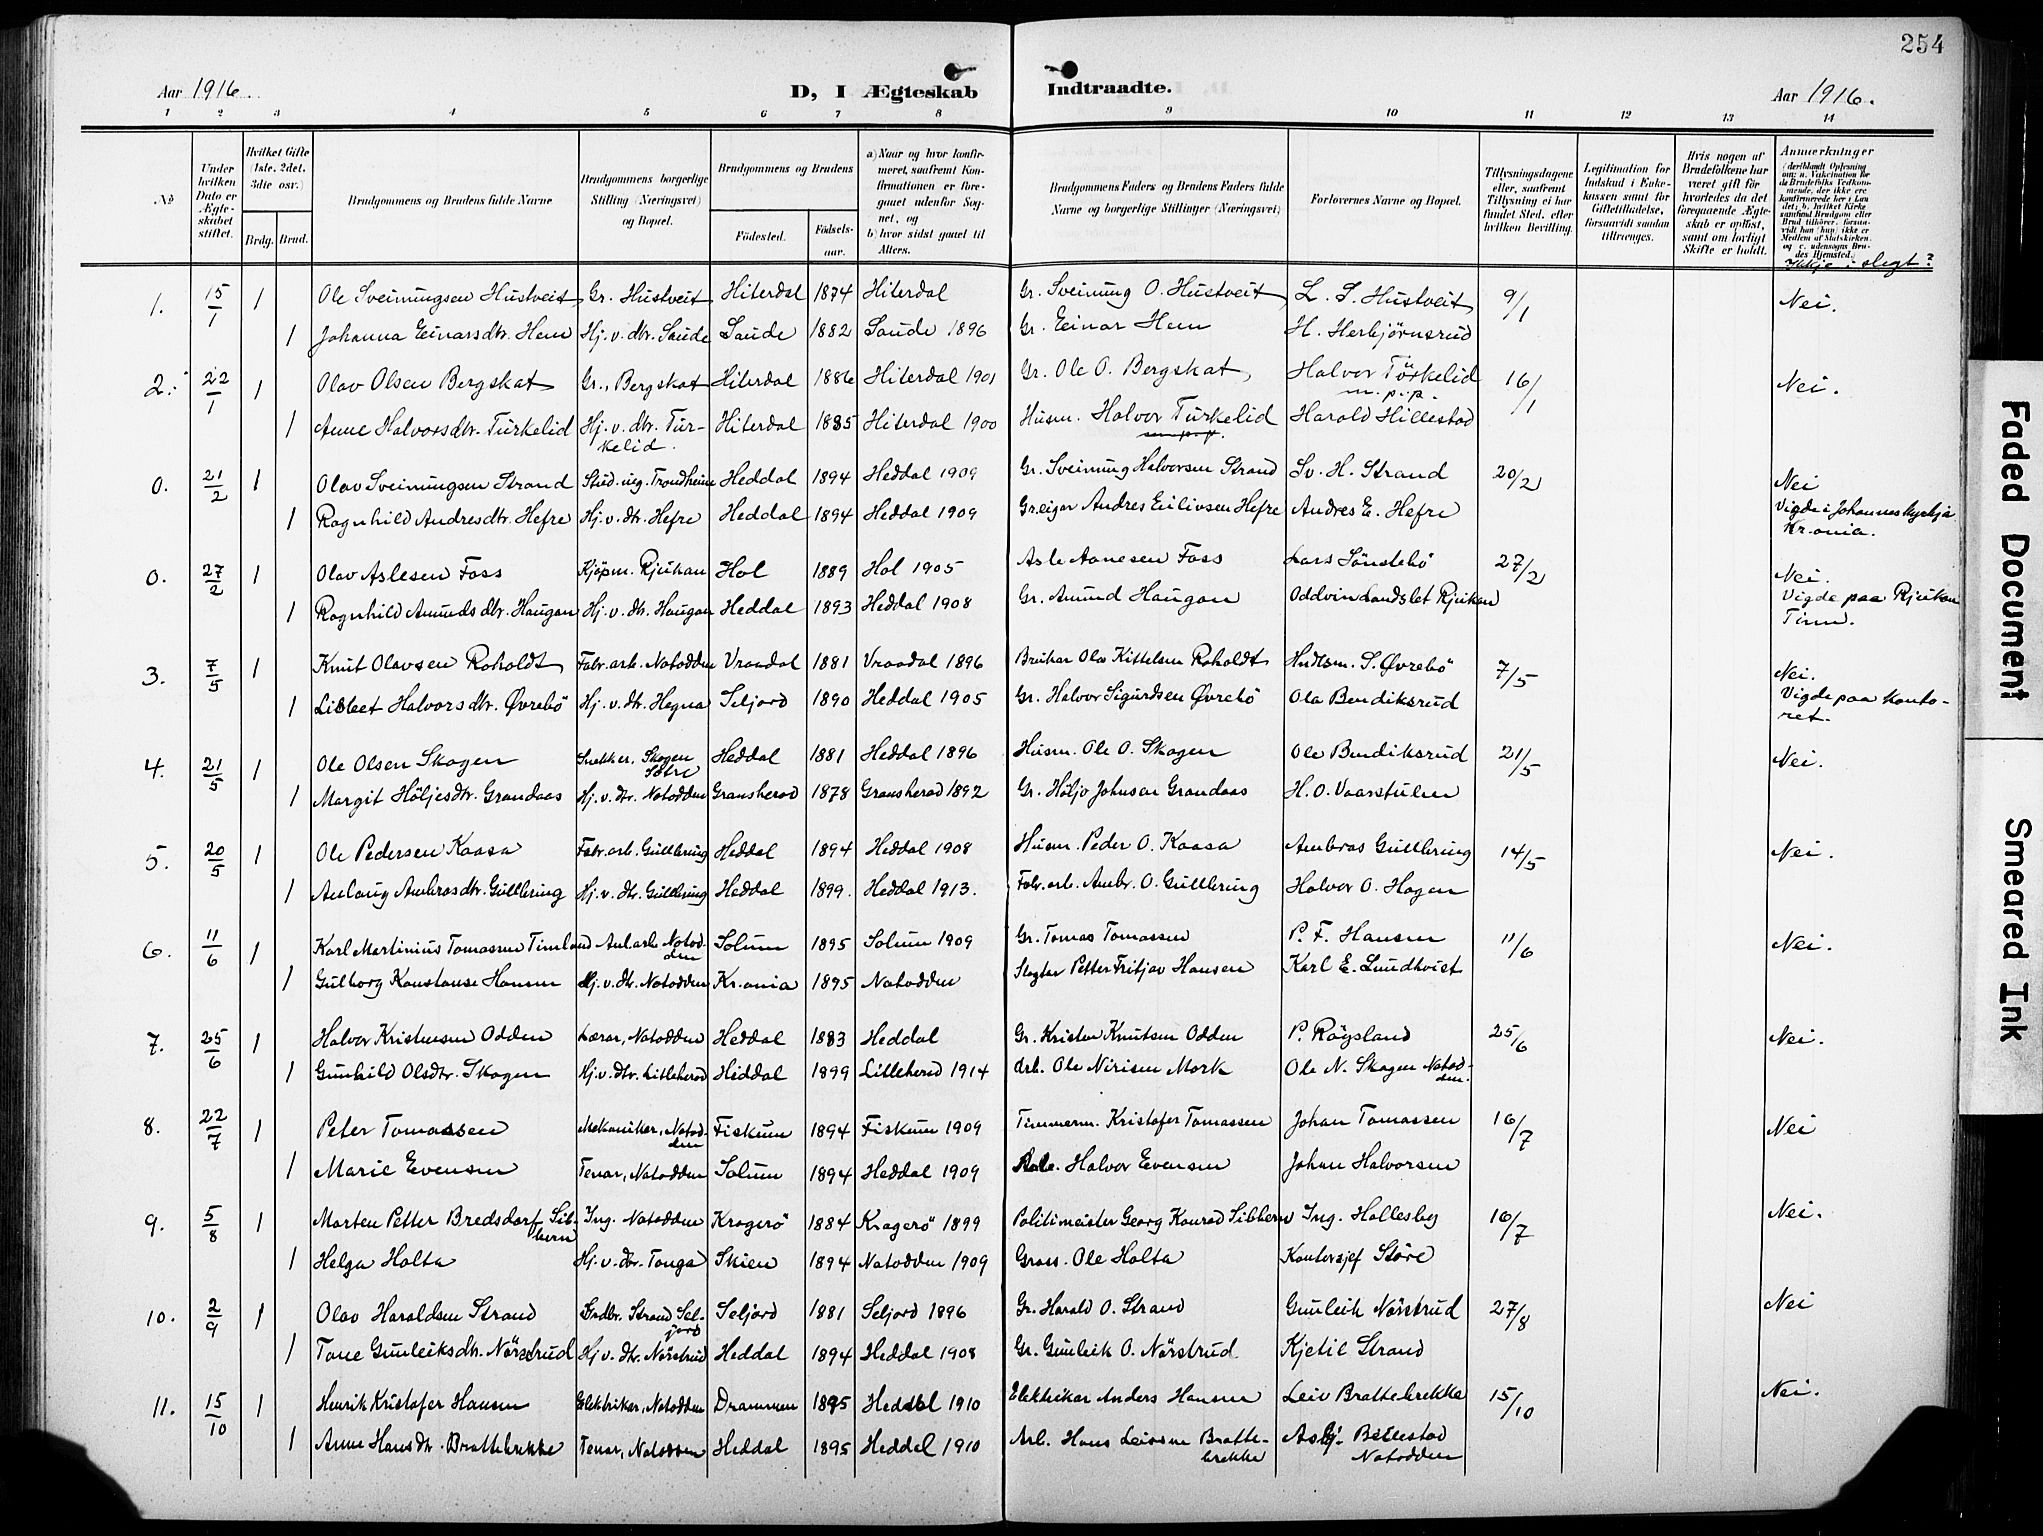 254
Aar 1916.
D, I Ægteskab Indtraadte.
Aar 1916.
1 2 3 4 5 6 7 8 9 10 11 12 13 14
No
Under hvilken Dato er Ægteskabet stiftet.
Hvilket Gifte (1ste, 2det, 3die osv.)
Brdg. Brud.
Brudgommens og Brudens fulde Navne
Brudgommens borgerlige Stilling (Næringsvei) og Bopæl.
Brudgommens og Brudens
Fødested. Fødselsaar.
a) Naar og hvor konfirmeret, saafremt Konfirmationen er foregaaet udenfor Sognet, og
b) hvor sidst gaaet til Alters.
Brudgommens Faders og Brudens Faders fulde Navne og borgerlige Stillinger (Næringsvei)
Forlovernes Navne og Bopæl.
Tillysningsdagene eller, saafremt Tillysning ei har fundet Sted, efter hvilken Bevilling.
Legitimation for Indskud i Enkekassen samt for Giftetilladelse, forsaavidt saadan tiltrænges.
Hvis nogen af Brudefolkene har været gift før hvorledes da det foregaaende Ægteskab er opløst, samt om lovligt Skifte er holdt.
Anmærkninger
(deriblandt Oplysning om: a. Vakcination for de Brudefolks Vedkommende, der ikke ere konfirmerede her i Landet; b. hvilket Kirkesamfund Brudgom eller Brud tilhører, forsaavidt han (hun) ikke er Medlem af Statskirken, og c. udensogns Brudes Hjemsted.)
Ikkje i slegt?
1. 15/1 1 Ole Sveinungsen Hustveit Gr. Hustveit Hiterdal 1874 Hiterdal Gr. Sveinung O. Hustveit L. S. Hustveit 9/1 Nei.
1 Johanna Einarsdtr. Hem Hj. v. dtr. Saude Saude 1882 Saude 1896 Gr. Einar Hem H. Herbjörnsrud
2. 22/1 1 Olav Olsen Bergskat Gr., Bergskat Hiterdal 1886 Hiterdal 1901 Gr. Ole O. Bergskat, Halvor Törkelid 16/1 Nei.
m. p. p.
1 Anne Halvorsdtr. Turkelid Hj. v. dtr. Turkelid. Hiterdal 1885 Hiterdal 1900 Husm. Halvor Turkelid Harald Hillestad
0. 21/2 1 Olav Sveinungsen Strand Stud. ing. Trondheim Heddal 1894 Heddal 1909 Gr. Sveinung Halvorsen Strand Sv. H. Strand 20/2 Nei
1 Ragnhild Andresdtr. Hefre Hj. v. dtr. Hefre Heddal 1894 Heddal 1909 Gr.eigar Andres Eilivsen Hefre Andres E. Hefre Vigde i Johanneskyrkja Kr.ania.
0. 27/2 1 Olav Aslesen Foss Kjøpm. Rjukan Hol 1889 Hol 1905 Asle Aanesen Foss Lars Sönstebö 27/2 Nei.
1 Ragnhild Amundsdtr. Haugan Hj. v. dtr. Haugan Heddal 1893 Heddal 1908 Gr. Amund Haugan Oddvin Landslet Rjukan Vigde paa Rjukan Tinn.
3. 7/5 1 Knut Olavsen Roholdt Fabr. arb. Notodden Vraadal 1881 Vraadal 1896 Brukar Olav Kittelsen Roholdt Hndlsm. S. Øvrebö 7/5 Nei.
1 Lisbet Halvorsdtr. Øvrebö Hj. v. dtr. Hegna Seljord 1890 Heddal 1905 Gr. Halvor Sigurdsen Øvrebö Ola Bendiksrud Vigde paa kontoret.
4. 21/5 1 Ole Olsen Skogen Snekker. Skogen Heddal 1881 Heddal 1896 Husm. Ole O. Skogen Ole Bendiksrud 21/5 Nei.
1 Margit Höljesdtr. Grandaas Hj. v. dtr. Notodden Gransherad 1878 Gransherad 1892 Gr. Höljo Johnsen Grandaas H. O. Vaarstulen
5. 20/5 1 Ole Pedersen Kaasa Fabr. arb. Gullbring Heddal 1894 Heddal 1908 Husm. Peder O. Kaasa Ambros Gullbring 14/5 Nei.
1 Anlaug Ambrosdtr. Gullbring Hj. v. dtr. Gullbring Heddal 1899. Heddal 1913. Fabr. arb. Ambr. O. Gullbring Halvor O. Hagen
6. 11/6 1 Karl Martinius Tomassen Timland Anl.arb. Notodden Solum 1895 Solum 1909 Gr. Tomas Tomassen P. F. Hansen 11/6 Nei.
1 Gulborg Konstanse Hansen Hj. v. dtr. Notodden Kr.ania 1895 Notodden Slagtar Petter Fritjav Hansen Karl E. Lundkvist
7. 25/6 1 Halvor Kristensen Odden Lærar, Notodden Heddal 1883 Heddal Gr. Kristen Knutsen Odden P. Röysland 25/6 Nei.
1 Gunhild Olsdtr. Skogen Hj. v. dtr. Lilleherad Heddal 1899 Lilleherad 1914 Arb. Ole Nirisen Mork Ole N. Skogen Notodden.
8. 22/7 1 Peter Tomassen Mekanikar, Notodden Fiskum 1894 Fiskum 1909 Timmerm. Kristofer Tomassen Johan Tomassen 16/7 Nei
1 Marie Evensen Tenar, Notodden Solum 1894 Heddal 1909 Halvor Evensen Johan Halvorsen
9. 5/8 1 Morten Petter Bredsdorf Sibbern Ing. Notodden Kragerö 1884 Kragerö 1899 Politimeister Georg Konrad Sibbern Ing. Hallesby 16/7 Nei.
1 Helga Holta Hj. v. dtr. Tonga Skien 1894 Notodden 1909 Gross. Ole Holta Kontorsjef Störe
10. 2/9 1 Olav Haraldsen Strand Grdbr. Strand Seljord Seljord 1881 Seljord 1896 Gr. Harald O. Strand Gunleik Nörstrud 27/8 Nei
1 Tone Gunleiksdtr. Nörstrud Hj. v. dtr. Nörstrud Heddal 1894 Heddal 1908 Gr. Gunleik O. Nörstrud Kjetil Strand
11. 15/10 1 Henrik Kristofer Hansen Elektrikar, Notodden Drammen 1895 Heddal 1910 Elektrikar Anders Hansen Leiv Brattebrekke 15/10 Nei.
1 Anne Hansdtr. Brattebrekke Tenar, Notodden Heddal 1895 Heddal 1910 Arb. Hans Leivsen Brattebrekke Asbj. Bøllestad Notodden
Faded Document
Smeared Ink